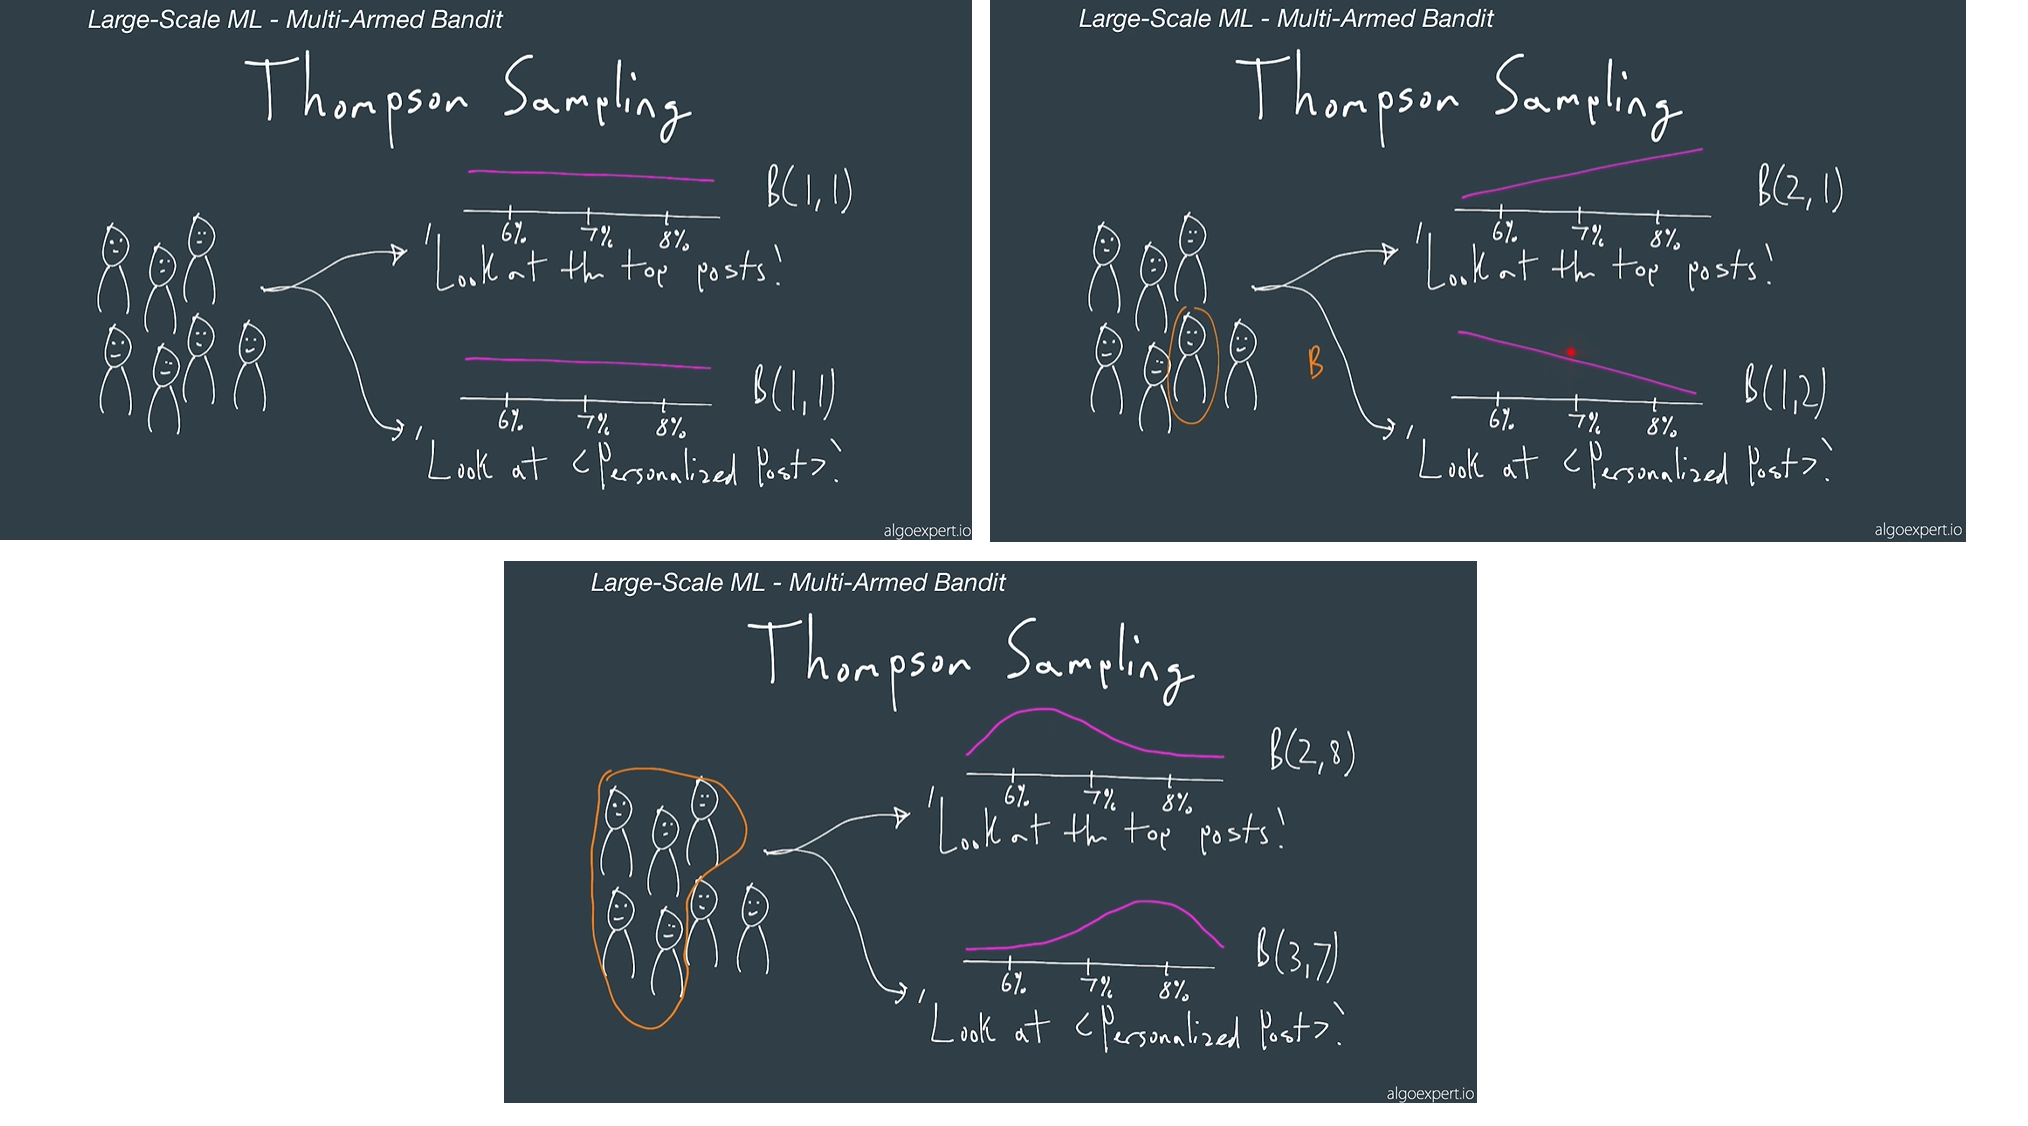 Large-Scale ML - Multi-Armed Bandit
Thompson Sampling
B(1,1)
6% 7% 8%
'Look at the top posts!'
B(1,1)
6% 7% 8%
'Look at <Personalized Post>!'
algoexpert.io
Large-Scale ML - Multi-Armed Bandit
Thompson Sampling
B(2,1)
6% 7% 8%
'Look at the top posts!'
B
B(1,2)
6% 7% 8%
'Look at <Personalized Post>!'
algoexpert.io
Large-Scale ML - Multi-Armed Bandit
Thompson Sampling
B(2,8)
6% 7% 8%
'Look at the top posts!'
B(3,7)
6% 7% 8%
'Look at <Personalized Post>!'
algoexpert.io